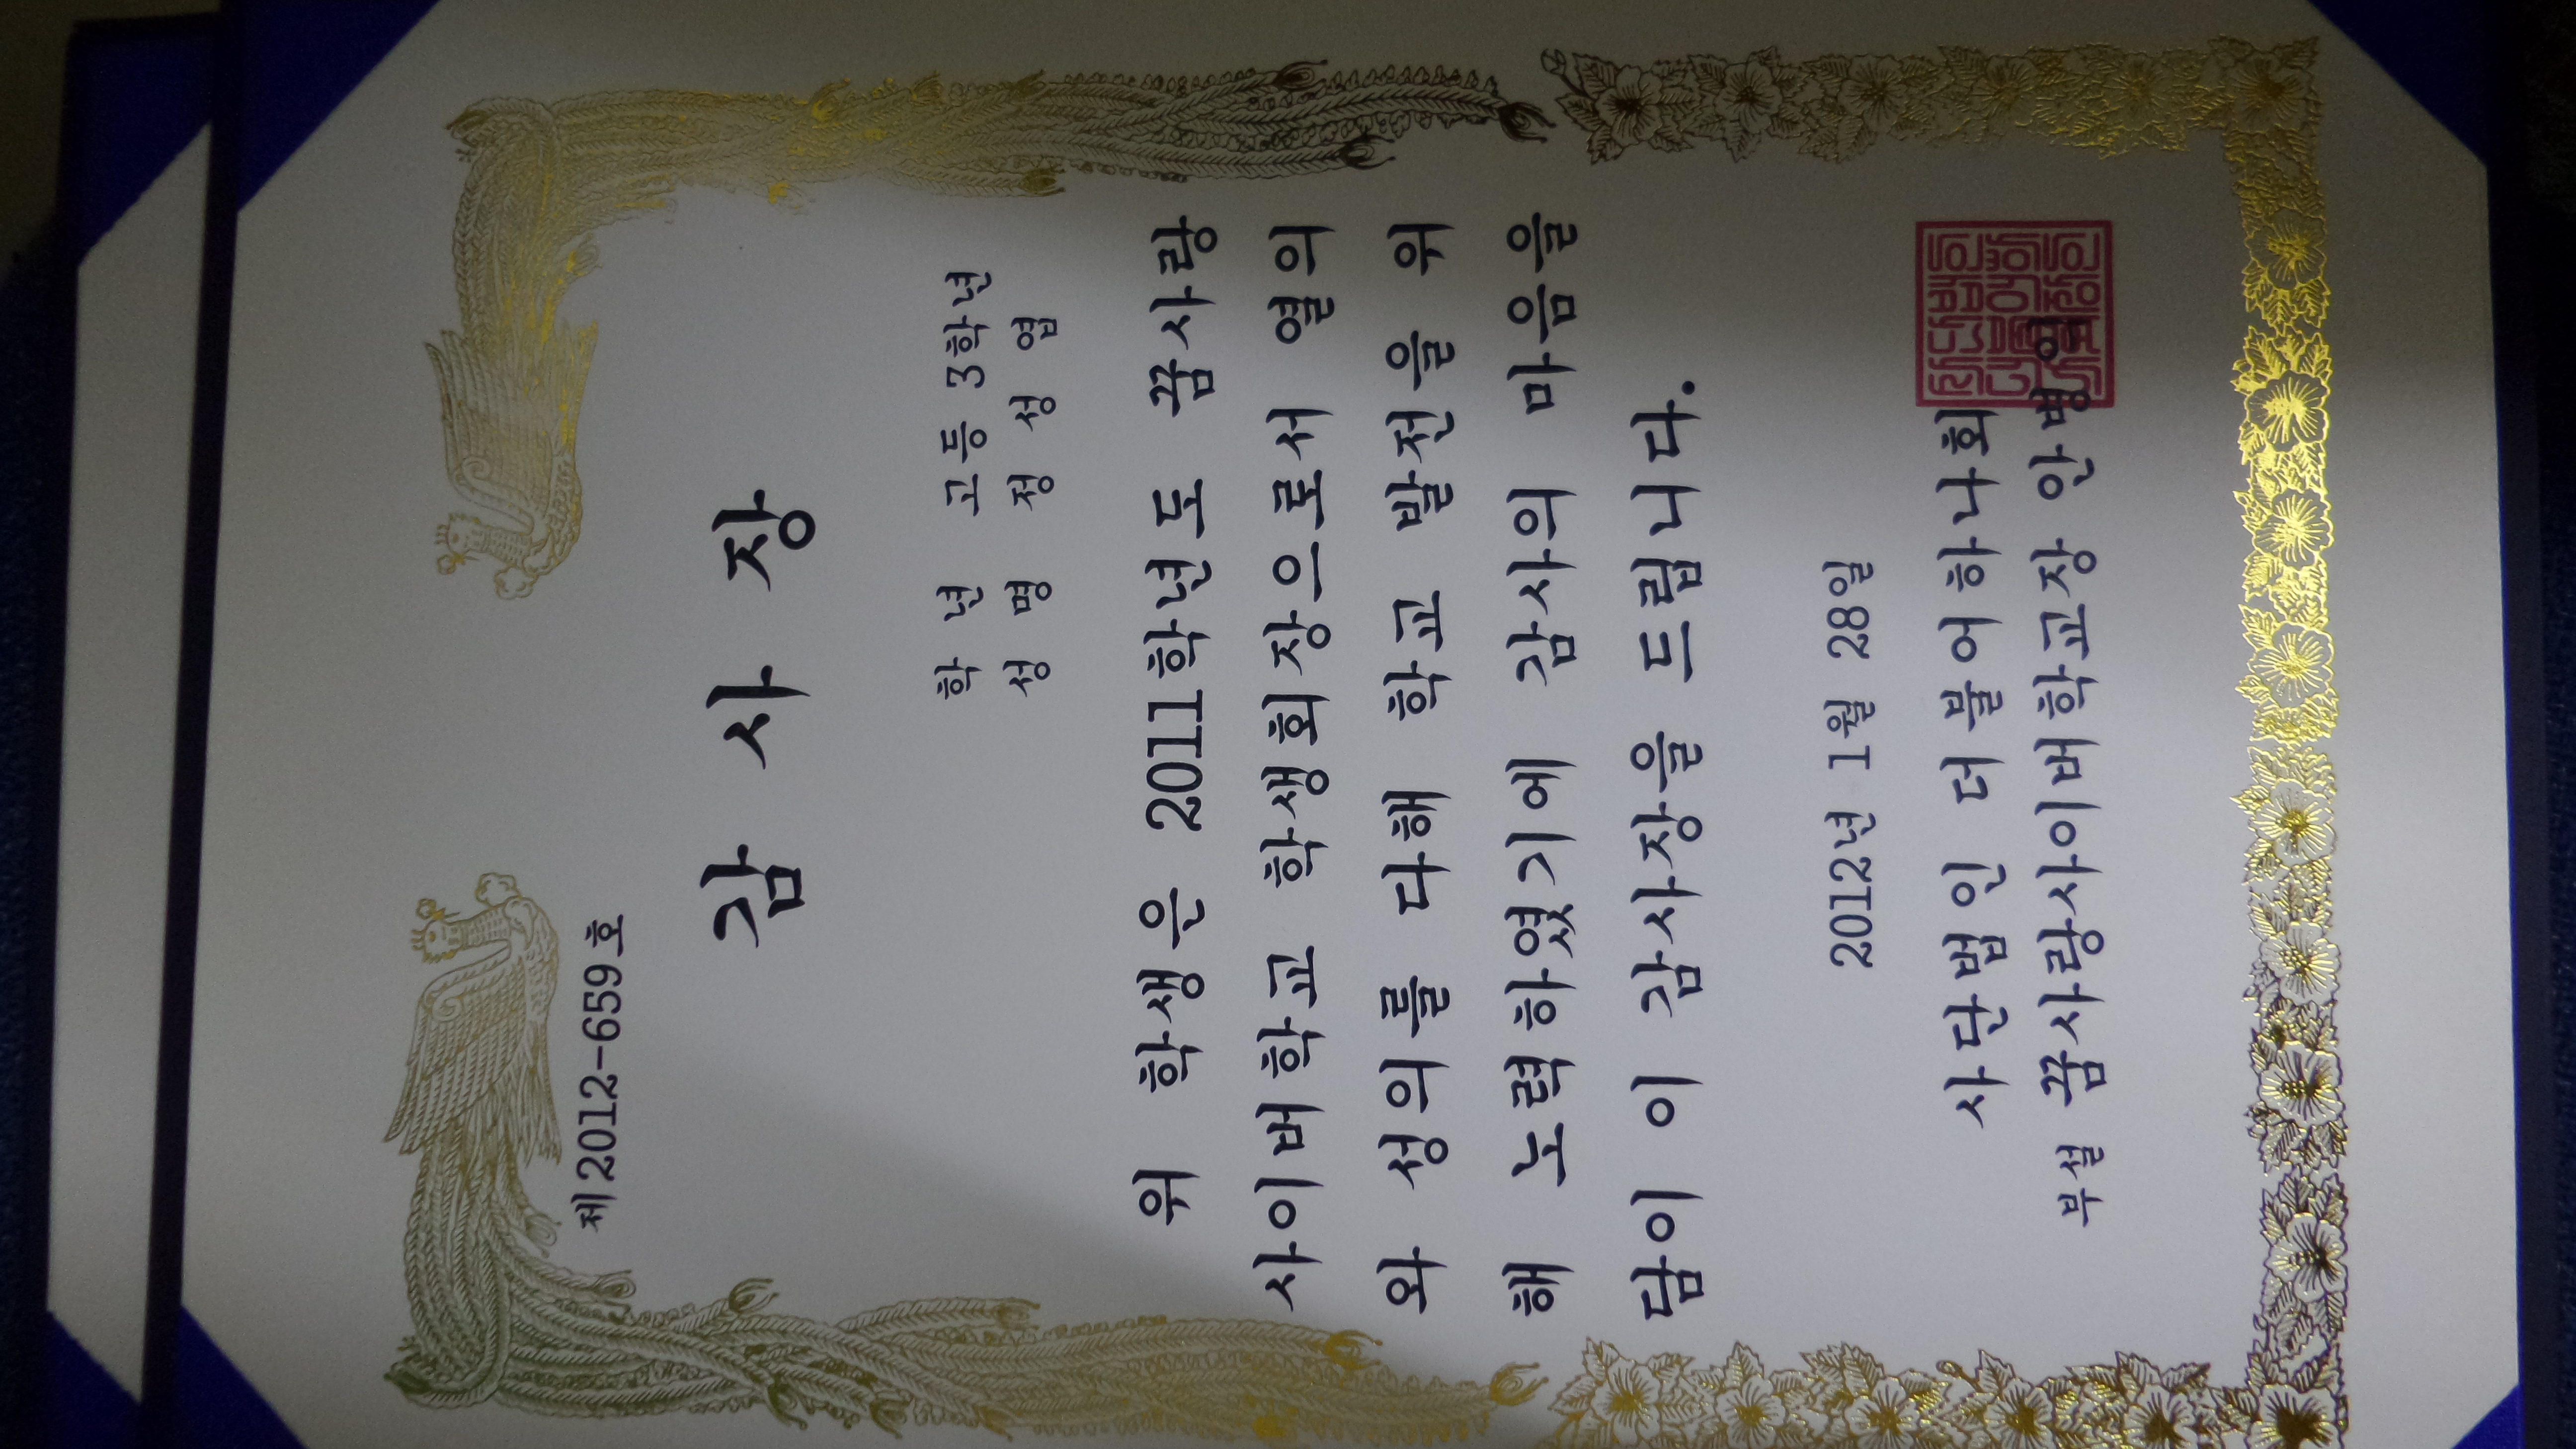 제2012-659호
감 사 장
학 년 고등 3학년
성 명 정 성 엽
위 학생은 2011학년도 꿈사랑
사이버학교 학생회장으로서 열의
와 성의를 다해 학교 발전을 위
해 노력하였기에 감사의 마음을
담아 이 감사장을 드립니다.
2012년 1월 28일
사단법인 더불어하나회
부설 꿈사랑사이버학교장 안병익